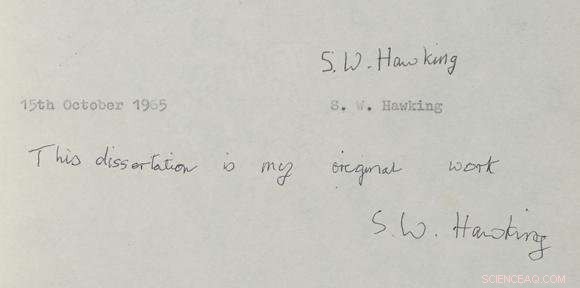 S. W. Hawking
15th October 1965
S. W. Hawking
This dissertation is my original work
S. W. Hawking
SCIENCEAQ.COM